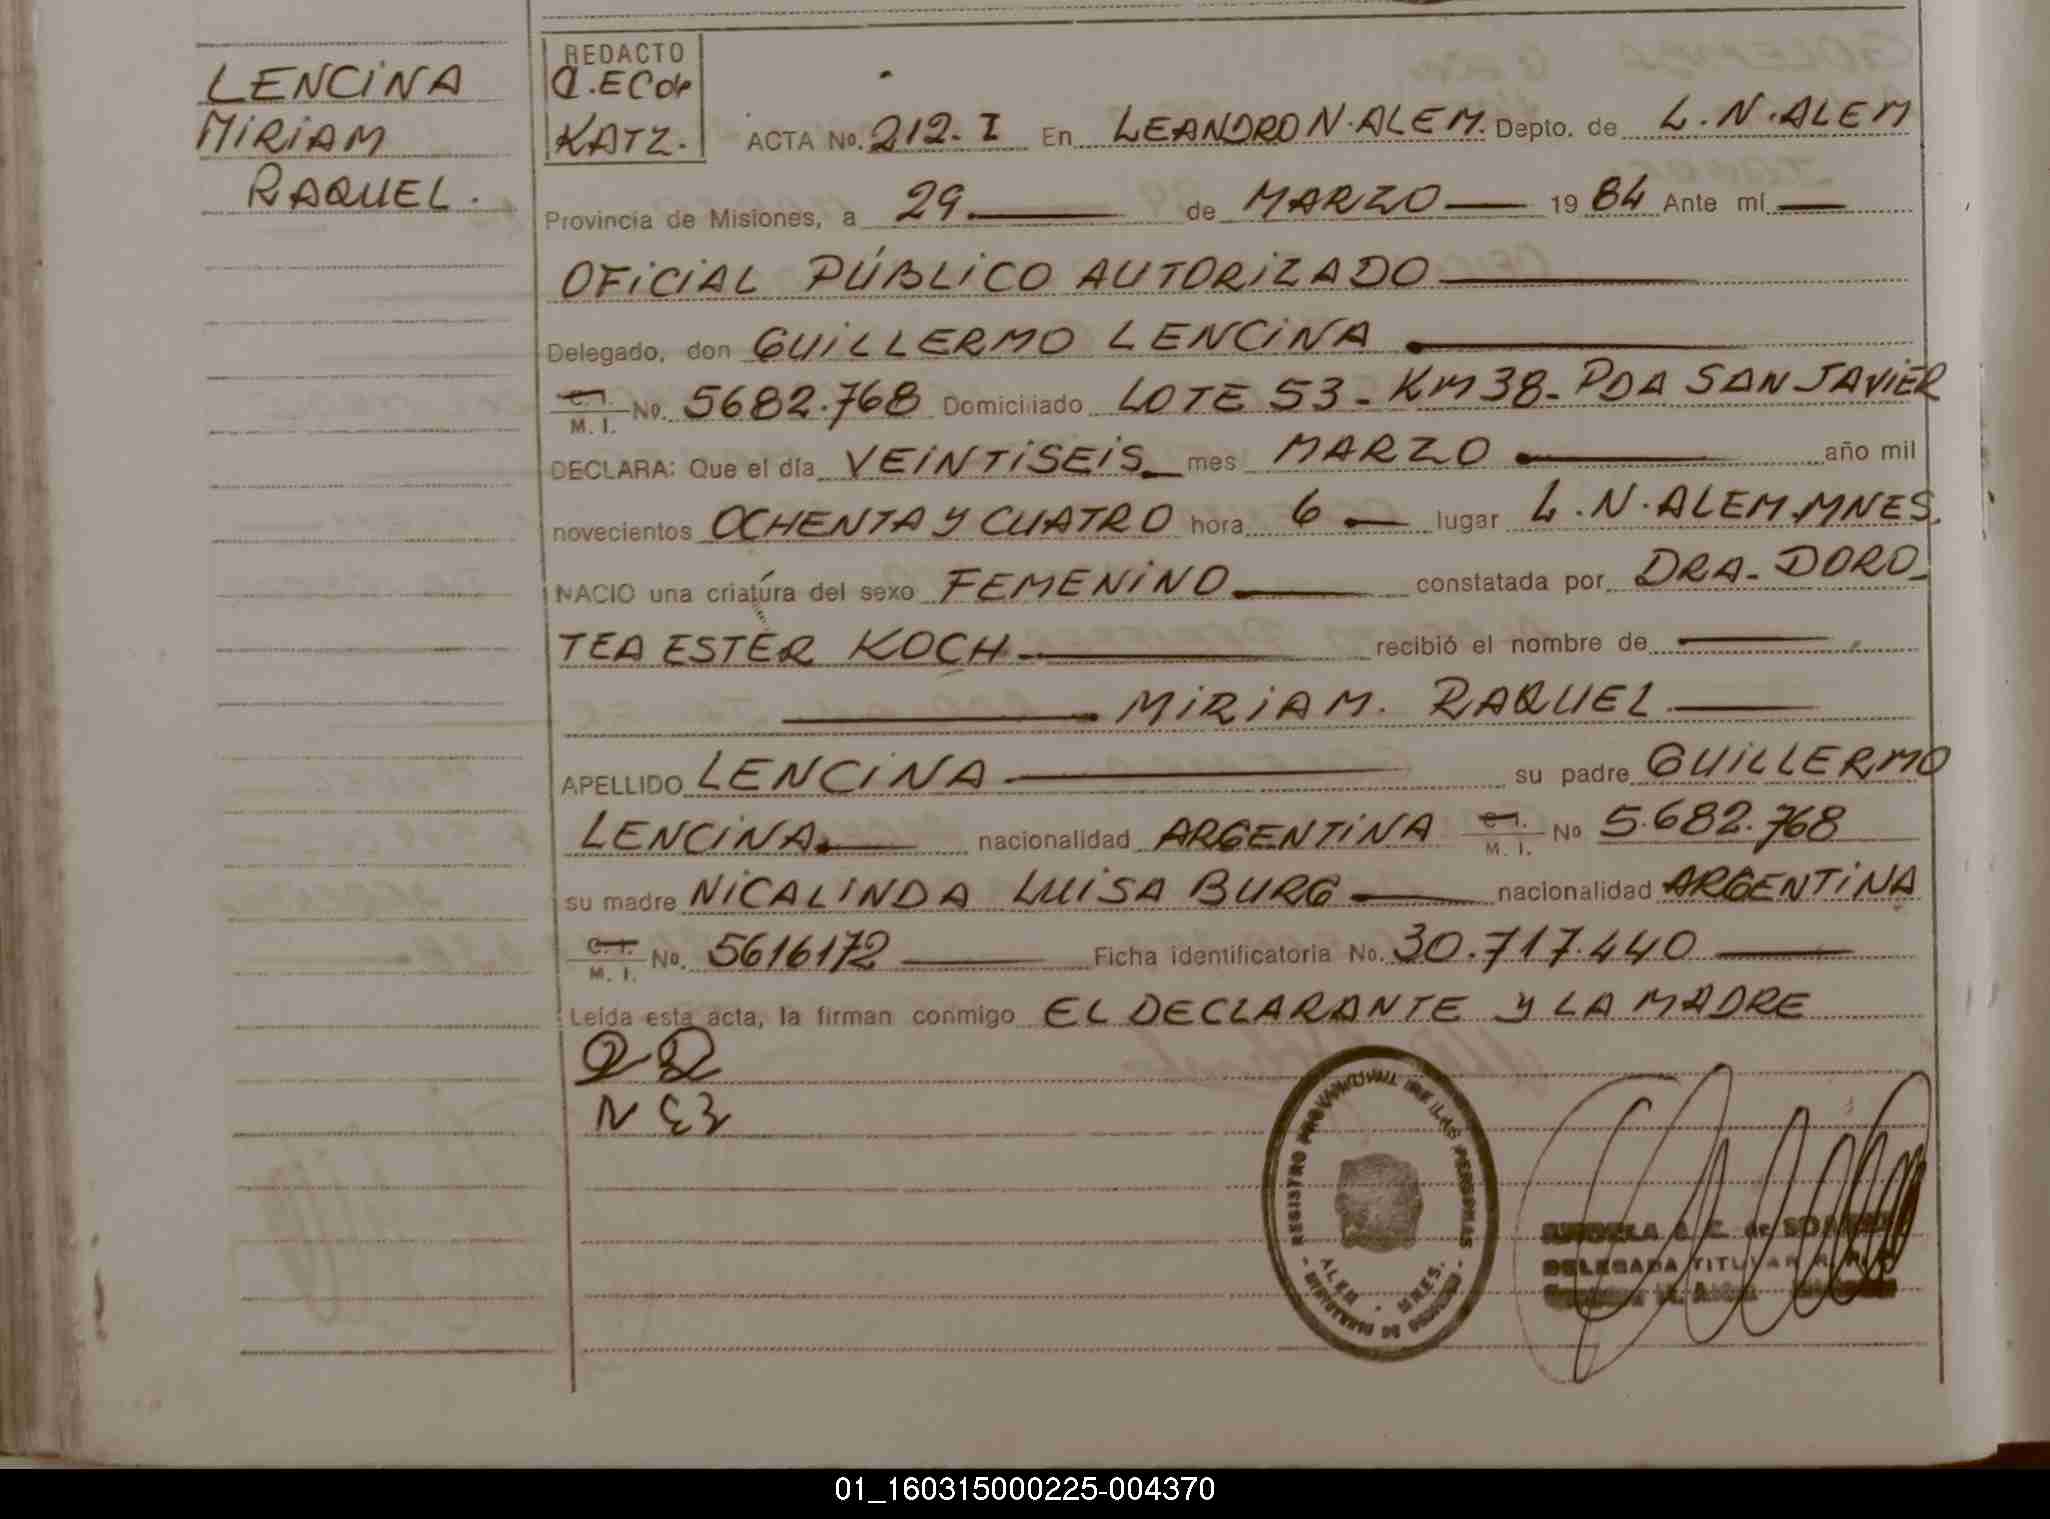 LENCINA
MIRIAM
RAQUEL.
REDACTO
C.EC de
KATZ.
ACTA No. 212. I En LEANDRO N. ALEM. Depto. de L. N. ALEM
Provincia de Misiones, a 29 de MARZO 1984 Ante mí
OFICIAL PÚBLICO AUTORIZADO
Delegado, don GUILLERMO LENCINA
C. I.
M. I. No. 5682.768 Domiciliado LOTE 53 - KM 38 - PDA SAN JAVIER
DECLARA: Que el día VEINTISEIS mes MARZO año mil
novecientos OCHENTA Y CUATRO hora 6 lugar L. N. ALEM. MNES.
NACIO una criatura del sexo FEMENINO constatada por DRA. DORO-
TEA ESTER KOCH recibió el nombre de
MIRIAM. RAQUEL
APELLIDO LENCINA su padre GUILLERMO
LENCINA nacionalidad ARGENTINA C. I. M. I. No 5.682.768
su madre NICALINDA LUISA BURG nacionalidad ARGENTINA
C. I.
M. I. No. 5616172 Ficha identificatoria No. 30.717.440
Leída esta acta, la firman conmigo EL DECLARANTE Y LA MADRE
REGISTRO PROVINCIAL DE LAS PERSONAS
ALEM - MNES.
A. E. de
DELEGADA TITULAR
01_160315000225-004370